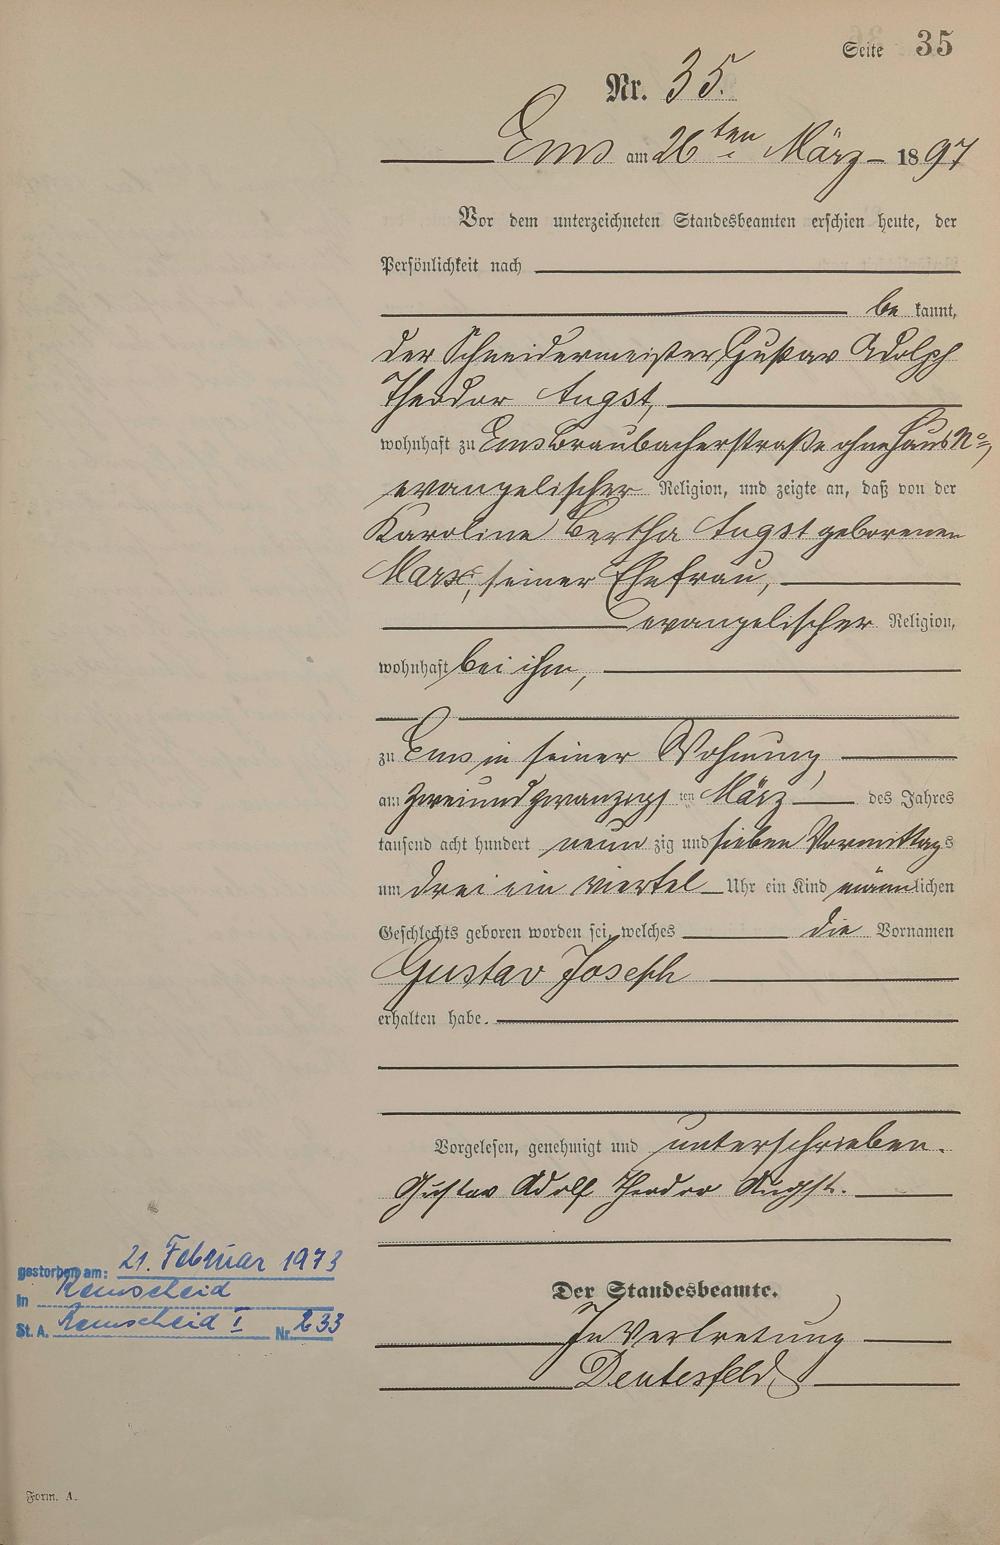 Seite 35
Nr. 35.
Ems am 26ten März 1897
Vor dem unterzeichneten Standesbeamten erschien heute, der
Persönlichkeit nach
be kannt,
der Schneidermeister Gustav Adolph
Theodor Angst,
wohnhaft zu Ems Braubacherstraße ohne Haus No,
evangelischer Religion, und zeigte an, daß von der
Karoline Bertha Angst geborenen
Marx, seiner Ehefrau,
evangelischer Religion,
wohnhaft bei ihm,
zu Ems in seiner Wohnung,
am zweiundzwanzigsten März des Jahres
tausend acht hundert neun zig und sieben Vormittags
um drei ein viertel Uhr ein Kind männlichen
Geschlechts geboren worden sei, welches die Vornamen
Gustav Joseph
erhalten habe.
Vorgelesen, genehmigt und unterschrieben.
Gustav Adolf Theodor Angst.
gestorben am: 21. Februar 1973
in Remscheid
St. A. Remscheid I Nr. 233
Der Standesbeamte.
In Vertretung
Form. A.